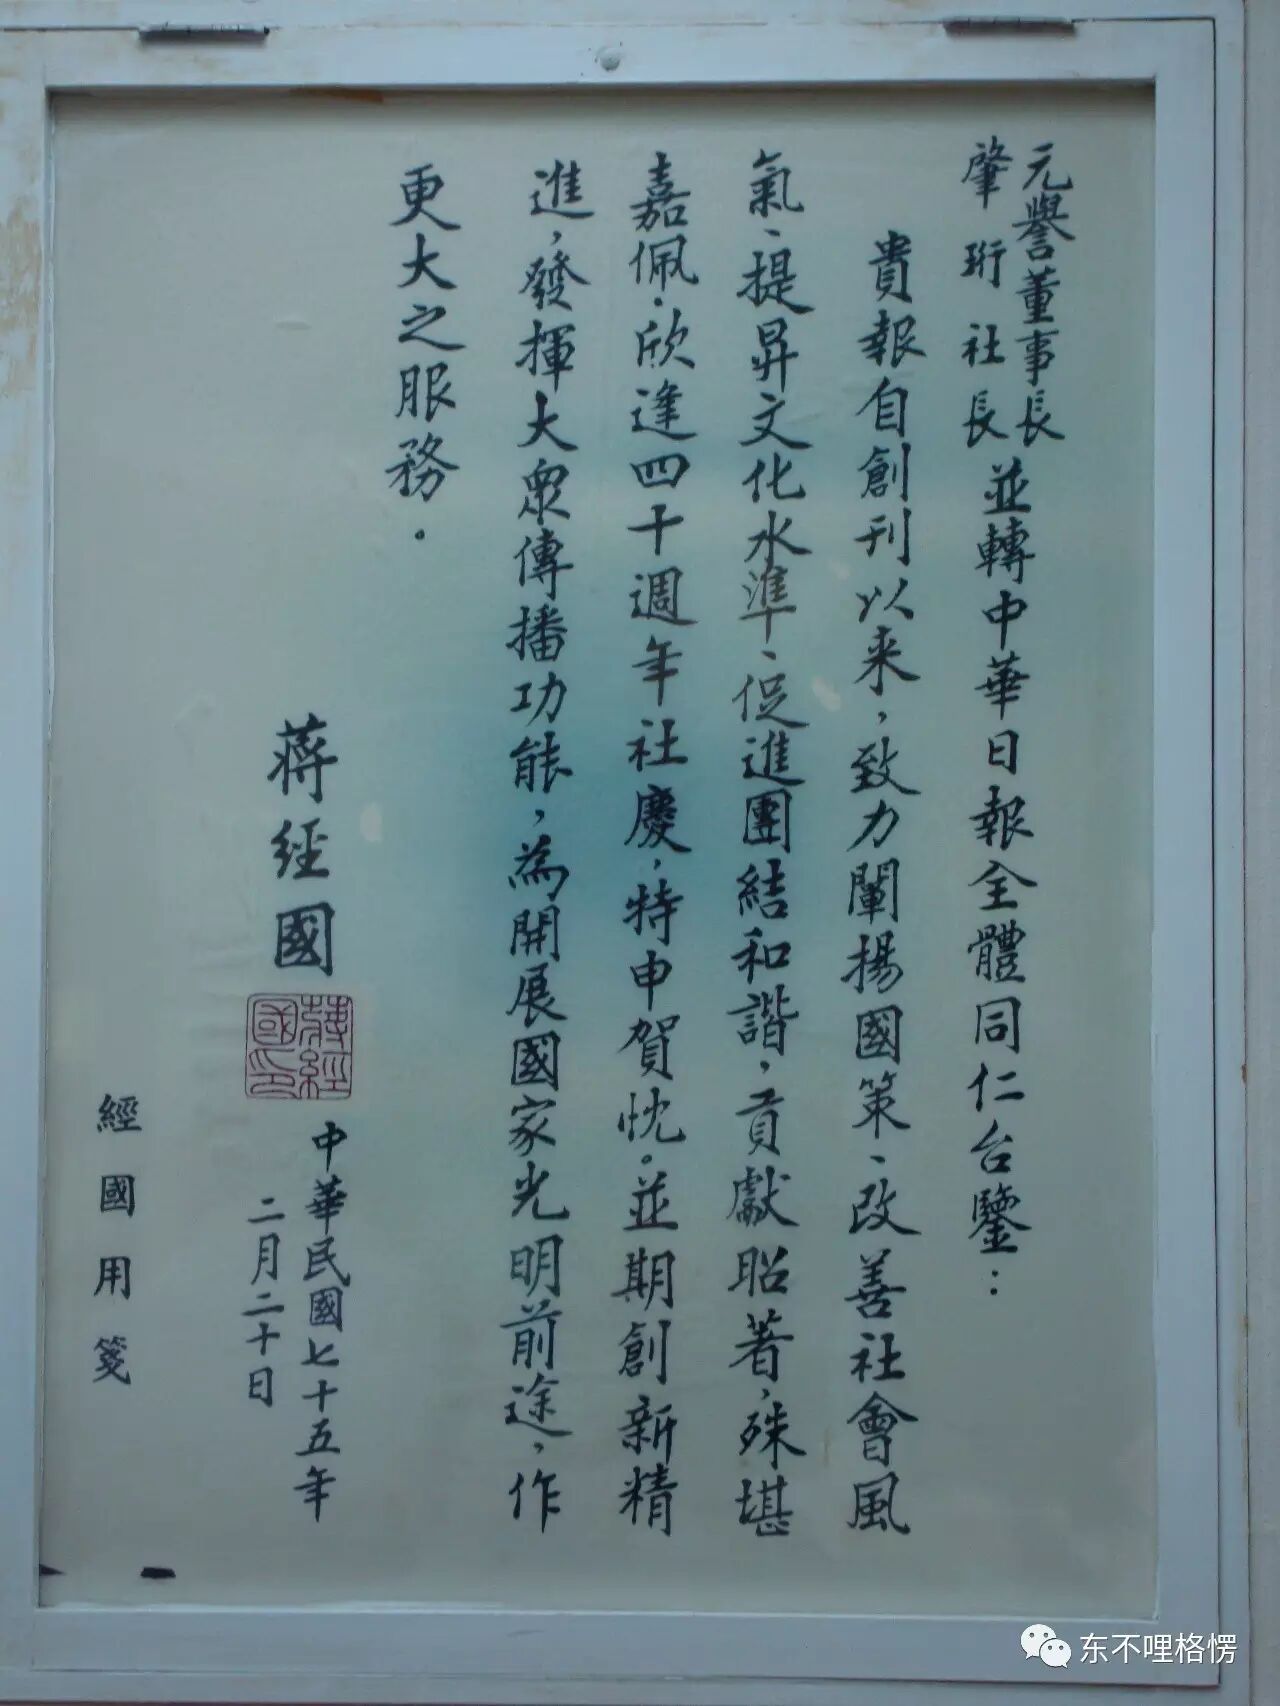 元譽董事長
肇珩社長
並轉中華日報全體同仁台鑒：
貴報自創刊以来，致力闡揚國策、改善社會風
氣、提昇文化水準、促進團結和諧，貢獻昭著，殊堪
嘉佩．欣逢四十週年社慶，特申賀忱。並期創新精
進，發揮大眾傳播功能，為開展國家光明前途，作
更大之服務．
蔣經國
蔣經國印
中華民國七十五年
二月二十日
經國用箋
东不哩格愣